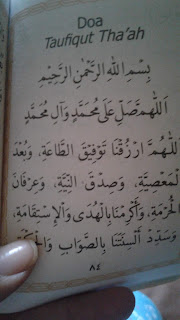 Doa
Taufiqut Tha'ah
بِسْمِ اللهِ الرَّحْمٰنِ الرَّحِيْمِ
اَللّٰهُمَّ صَلِّ عَلَى مُحَمَّدٍ وَآلِ مُحَمَّدٍ
اَللّٰهُمَّ ارْزُقْنَا تَوْفِيْقَ الطَّاعَةِ، وَبُعْدَ
الْمَعْصِيَّةِ، وَصِدْقَ النِّيَّةِ، وَعِرْفَانَ
الْحُرْمَةِ، وَأَكْرِمْنَا بِالْهُدَى وَالْاِسْتِقَامَةِ،
وَسَدِّدْ اَلْسِنَتَنَا بِالصَّوَابِ
٨٤